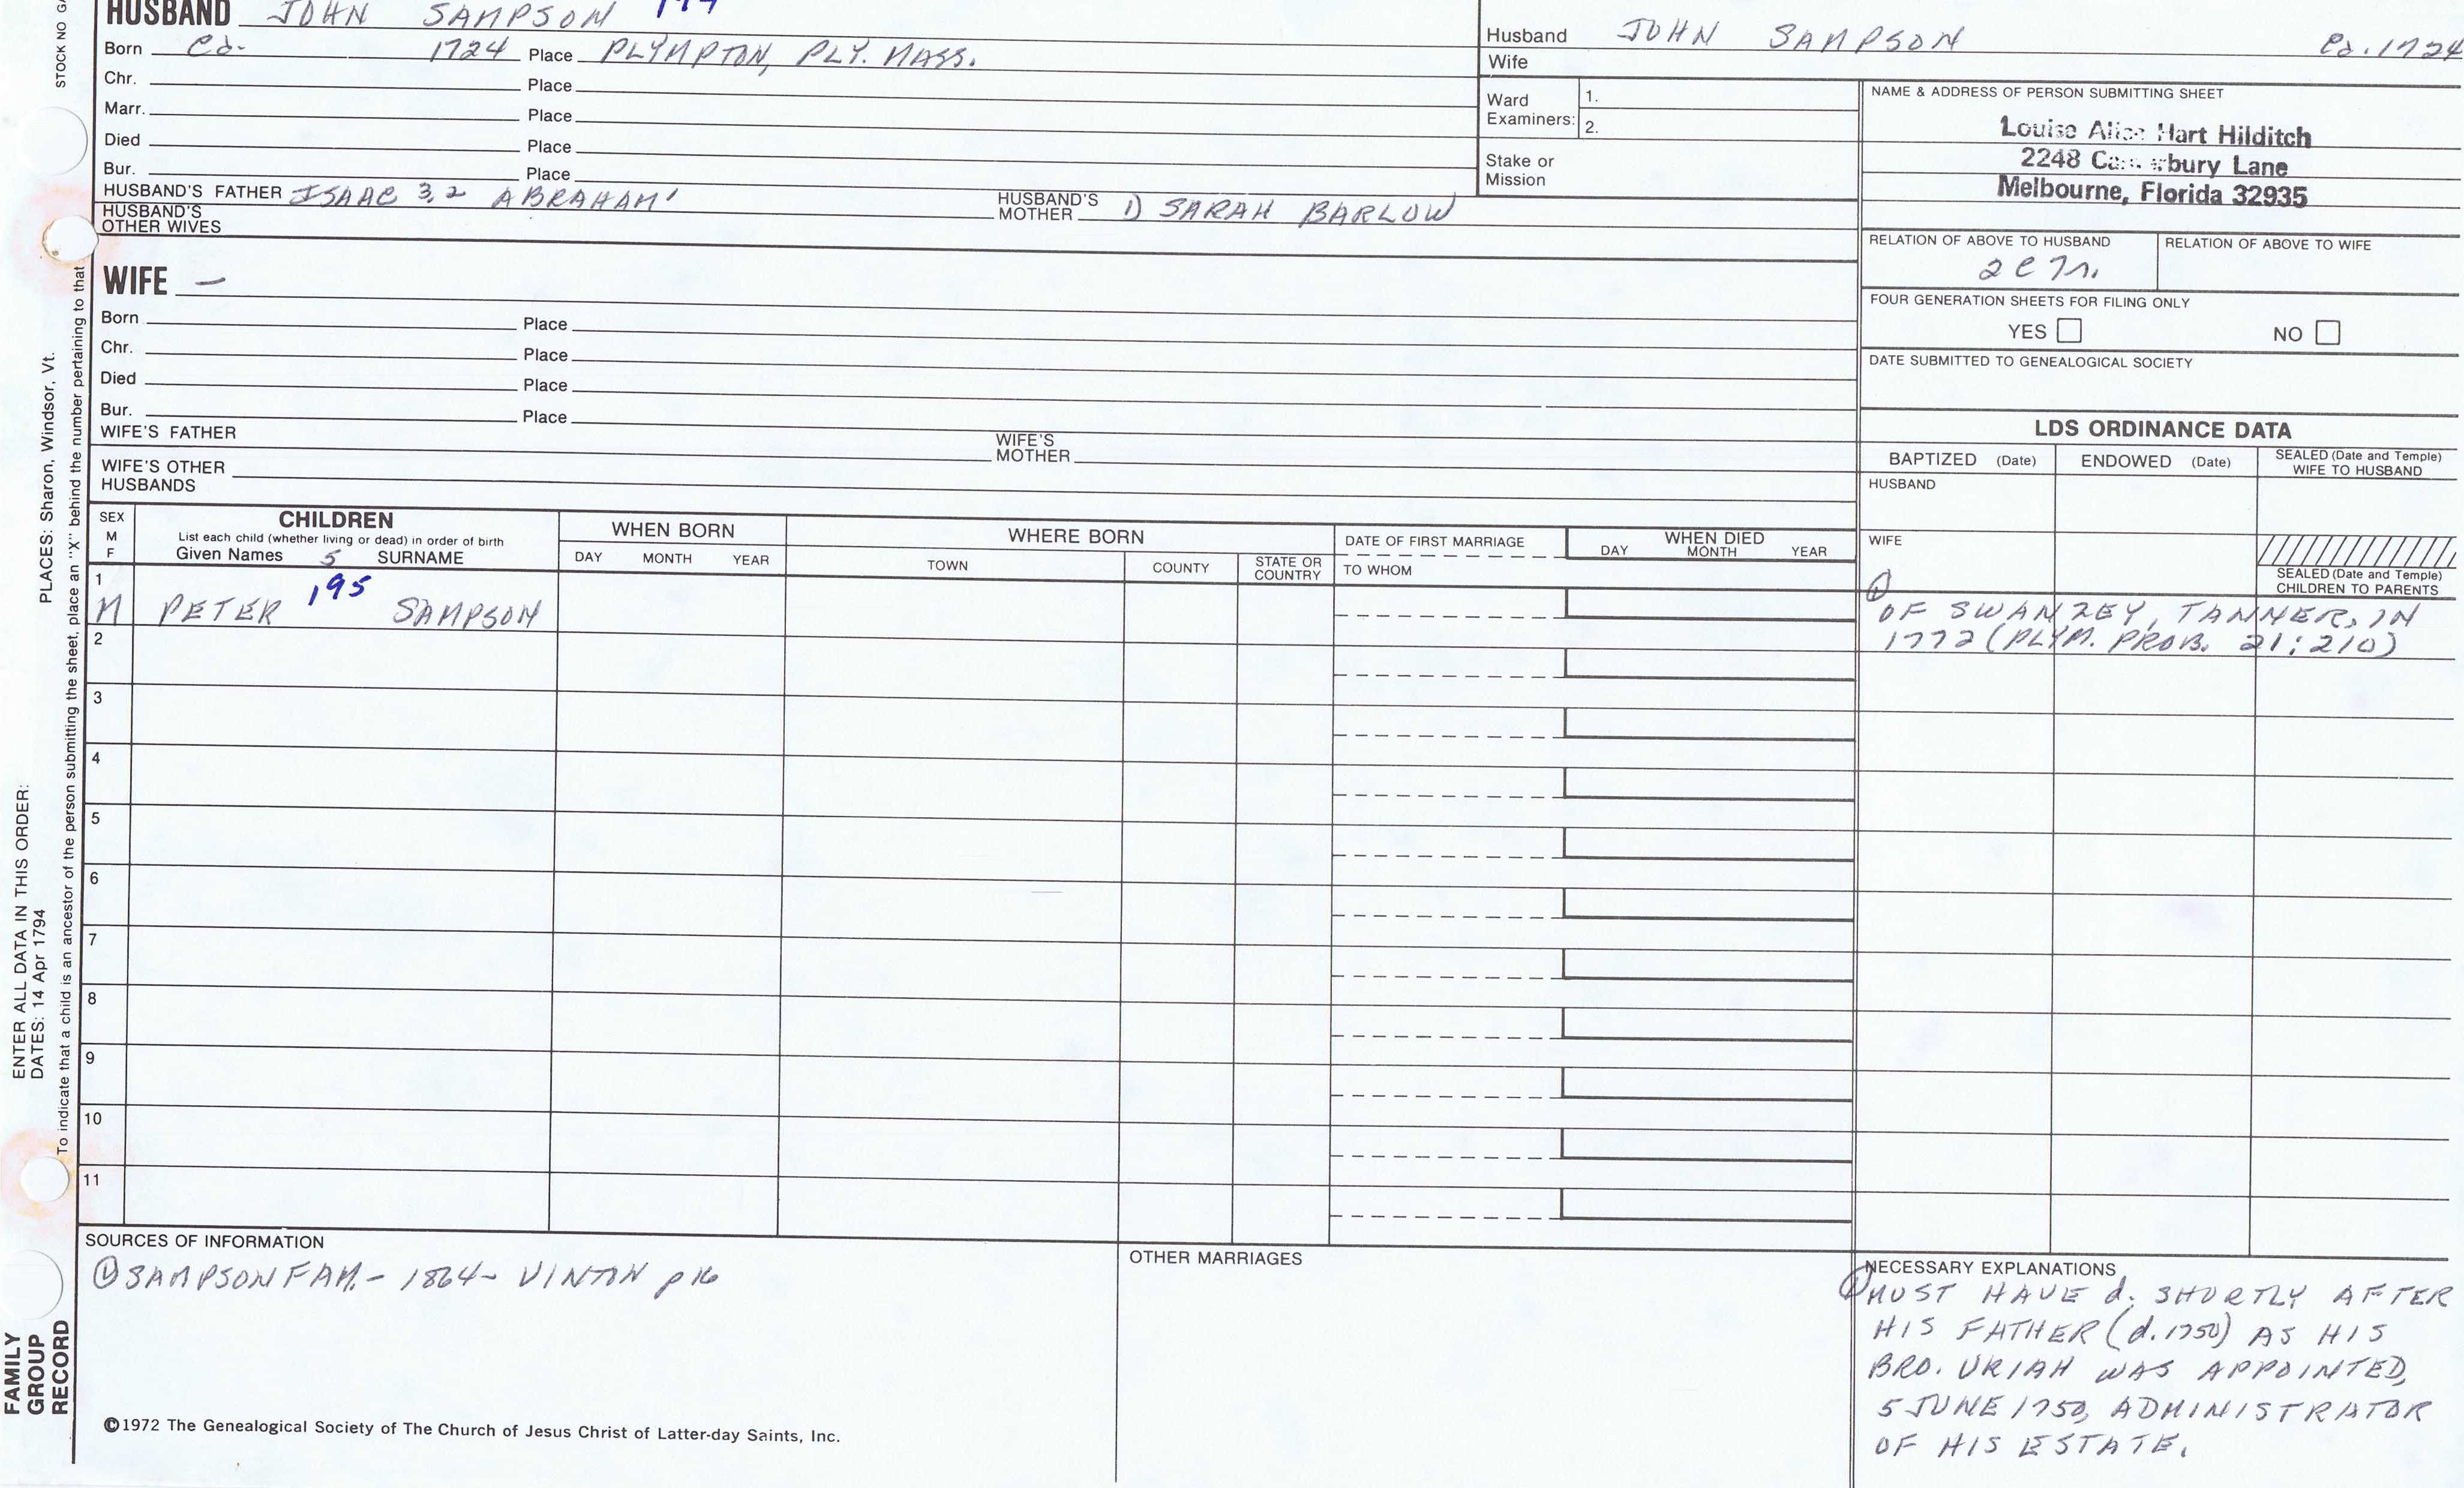 HUSBAND JOHN SAMPSON
Born ca. 1724 Place PLYMPTON, PLY. MASS.
Chr. Place
Marr. Place
Died Place
Bur. Place
HUSBAND'S FATHER ISAAC 3, 2 ABRAHAM' HUSBAND'S MOTHER 1) SARAH BARLOW
HUSBAND'S OTHER WIVES
Husband JOHN SAMPSON ca. 1724
Wife
Ward Examiners: 1.
2.
Stake or Mission
NAME & ADDRESS OF PERSON SUBMITTING SHEET
Louise Alice Hart Hilditch
2248 Lane
Melbourne, Florida 32935
RELATION OF ABOVE TO HUSBAND
RELATION OF ABOVE TO WIFE
FOUR GENERATION SHEETS FOR FILING ONLY
YES NO
DATE SUBMITTED TO GENEALOGICAL SOCIETY
WIFE –
Born Place
Chr. Place
Died Place
Bur. Place
WIFE'S FATHER WIFE'S MOTHER
WIFE'S OTHER HUSBANDS
LDS ORDINANCE DATA
BAPTIZED (Date) ENDOWED (Date) SEALED (Date and Temple) WIFE TO HUSBAND
HUSBAND
WIFE
SEALED (Date and Temple) CHILDREN TO PARENTS
SEX M F
CHILDREN
List each child (whether living or dead) in order of birth
Given Names 5 SURNAME
WHEN BORN
DAY MONTH YEAR
WHERE BORN
TOWN COUNTY STATE OR COUNTRY
DATE OF FIRST MARRIAGE
TO WHOM
WHEN DIED
DAY MONTH YEAR
1
M PETER 195 SAMPSON
① OF SWANZEY, TANNER, IN
1772 (PLYM. PROB. 21:210)
2
3
4
5
6
7
8
9
10
11
SOURCES OF INFORMATION
① SAMPSON FAM. - 1864 - VINTON p 16
OTHER MARRIAGES
NECESSARY EXPLANATIONS
① MUST HAVE d. SHORTLY AFTER
HIS FATHER (d. 1750) AS HIS
BRO. URIAH WAS APPOINTED,
5 JUNE 1750, ADMINISTRATOR
OF HIS ESTATE.
©1972 The Genealogical Society of The Church of Jesus Christ of Latter-day Saints, Inc.
STOCK NO
PLACES: Sharon, Windsor, Vt.
To indicate that a child is an ancestor of the person submitting the sheet, place an "X" behind the number pertaining to that
ENTER ALL DATA IN THIS ORDER:
DATES: 14 Apr 1794
FAMILY
GROUP
RECORD